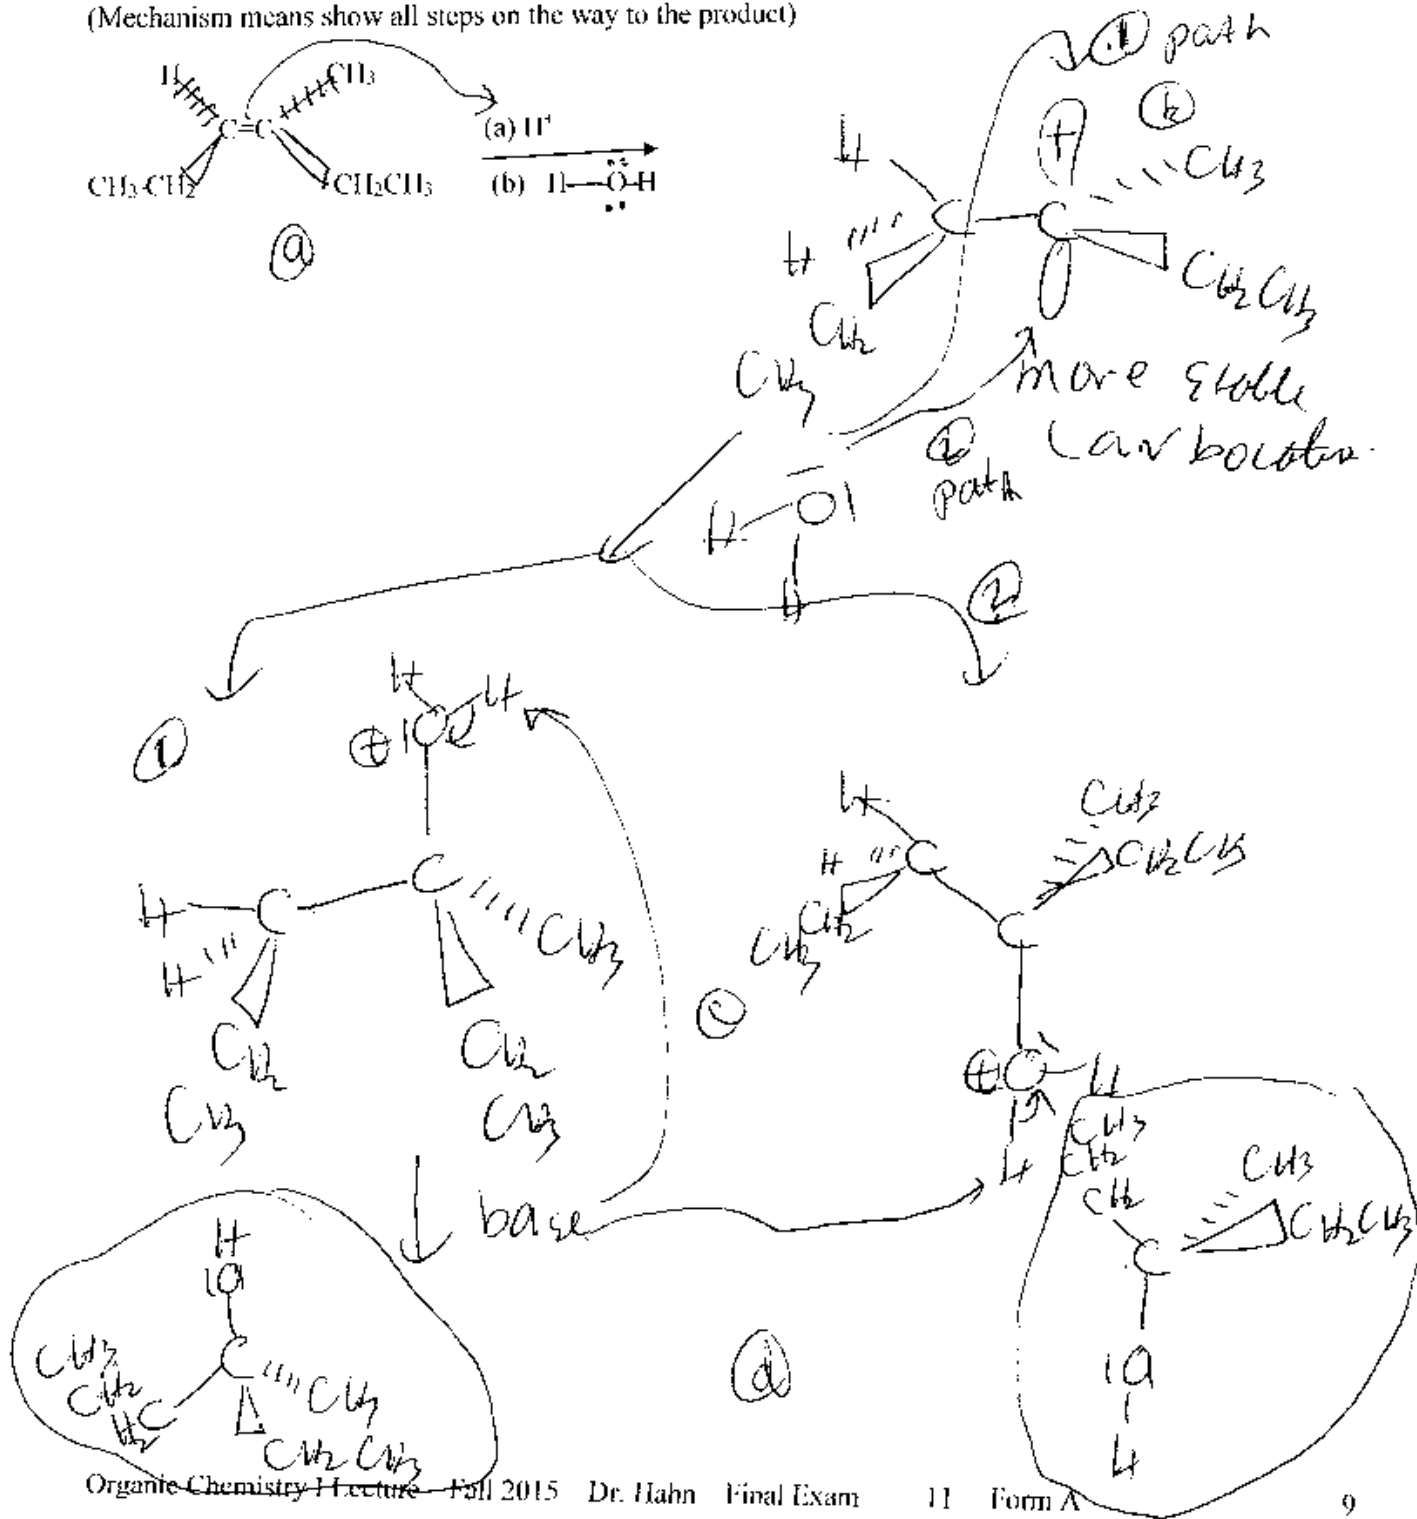 (Mechanism means show all steps on the way to the product)
H CH3
C=C
CH3-CH2 CH2CH3
(a) H+
(b) H—O-H
a
1 path
b
H + CH3
C — C
H CH2CH3
CH2
CH3
more stable
carbocation.
2
path
H O
H
1
2
H H
+ O
H C C CH3
H
CH2 CH2
CH3 CH3
H CH3
H C CH2CH3
CH3 CH2 C
c
+ O H
H
base
H
O
CH3
CH2 C
H2C CH3
CH2CH3
d
CH3
CH2 CH3
CH2
C CH2CH3
O
H
Organic Chemistry I Lecture Fall 2015 Dr. Hahn Final Exam 11 Form A 9